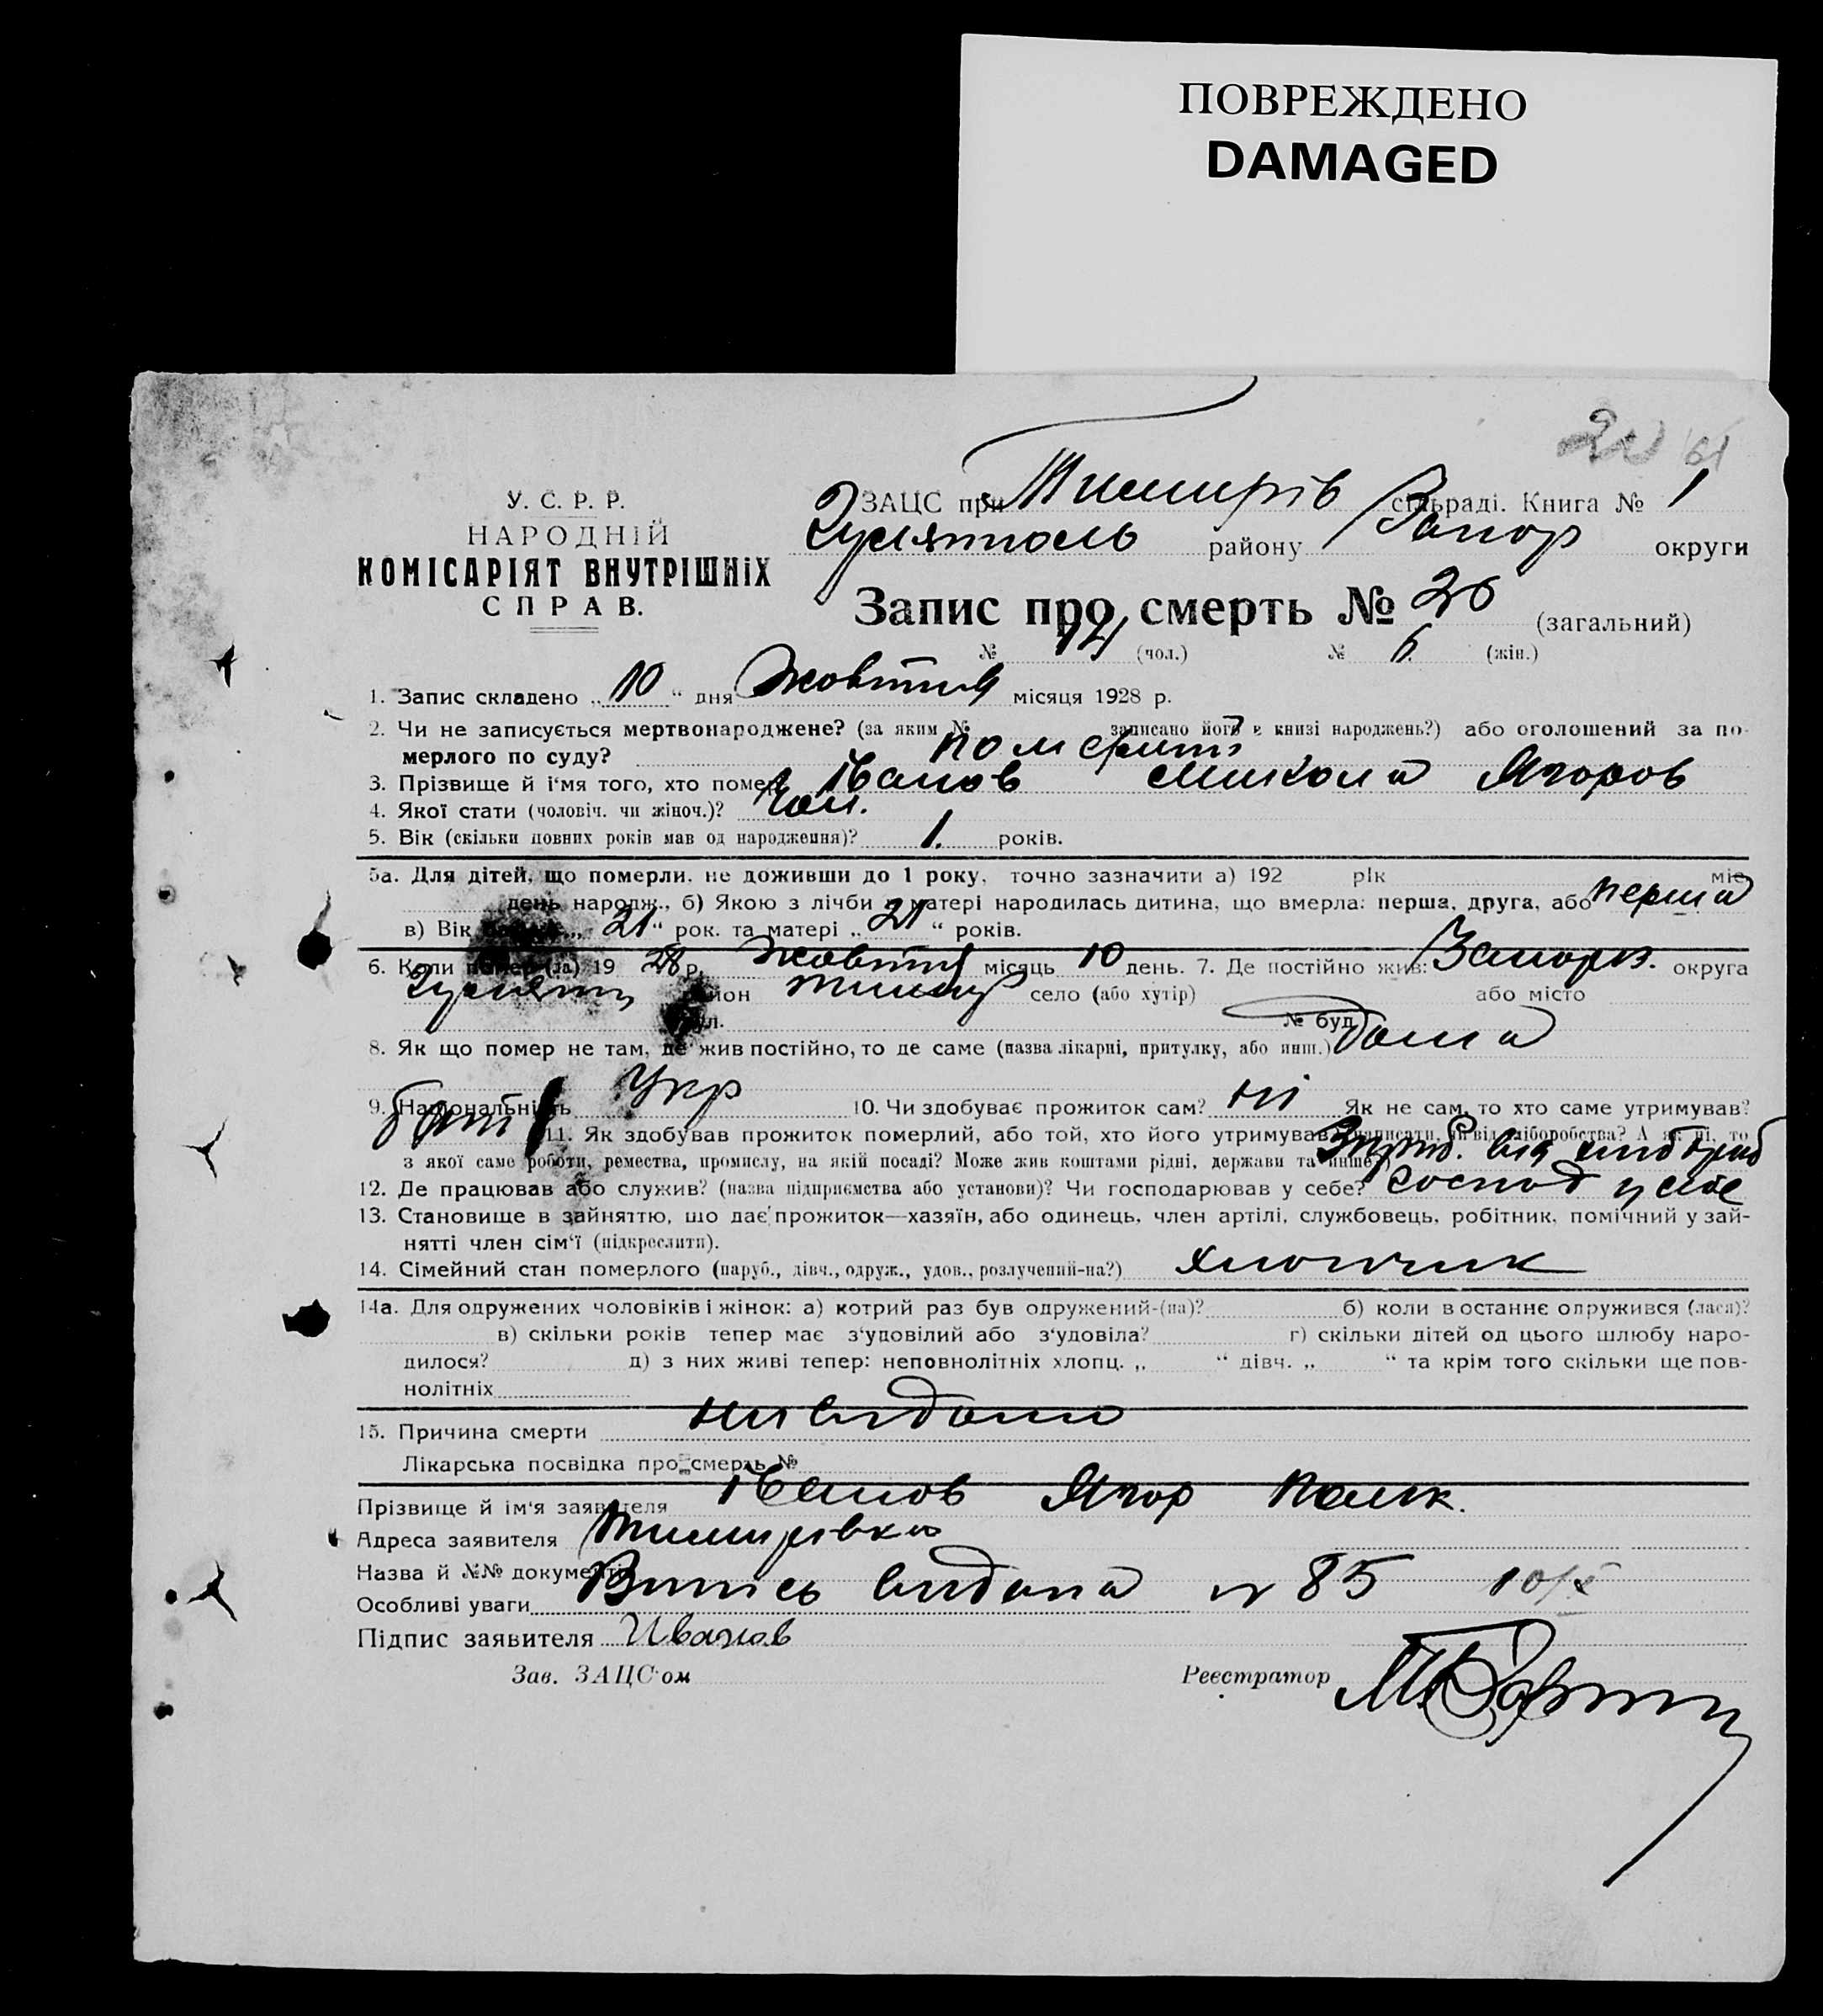 ПОВРЕЖДЕНО
DAMAGED
61
У. С. Р. Р.
НАРОДНІЙ
КОМІСАРІЯТ ВНУТРІШНІХ
СПРАВ.
ЗАЦС при Тимирів сільраді. Книга № 1
району Запор округи
Запис про смерть № 20 (загальний)
№ 14 (чол.) № 6. (жін.)
1. Запис складено „ 10 “ дня Жовтня місяця 1928 р.
2. Чи не записується мертвонароджене? (за яким № записано його в книзі народжень?) або оголошений за по-
мерлого по суду?
3. Прізвище й і'мя того, хто помер Іванов Микола Ягоров
4. Якої стати (чоловіч. чи жіноч.)? Чол.
5. Вік (скільки повних років мав од народження)? 1. років.
5а. Для дітей, що померли, не доживши до 1 року, точно зазначити а) 192 рік міс.
день народж., б) Якою з лічби у матері народилась дитина, що вмерла: перша, друга, або перша
в) Вік „ 21 “ рок. та матері „ 21 “ років.
6. Коли помер (ла) 19 28 р. Жовтня місяць 10 день. 7. Де постійно жив: Запорз. округа
район Тимир село (або хутір) або місто
вул. № буд.
8. Як що помер не там, де жив постійно, то де саме (назва лікарні, притулку, або инш.) Дома
9. Національність Укр 10. Чи здобуває прожиток сам? Ні Як не сам, то хто саме утримував?
11. Як здобував прожиток померлий, або той, хто його утримував (написати, чи від хліборобства? А як ні, то
з якої саме роботи, ремества, промислу, на якій посаді? Може жив коштами рідні, держави та инше)
12. Де працював або служив? (назва підприємства або установи)? Чи господарював у себе? Господ у себе
13. Становище в зайняттю, що дає прожиток—хазяїн, або одинець, член артілі, службовець, робітник, помічний у зай-
нятті член сім'ї (підкреслити).
14. Сімейний стан померлого (паруб., дівч., одруж., удов., розлучений-на?) хлопчик
14а. Для одружених чоловіків і жінок: а) котрий раз був одружений-(на)? б) коли в останнє одружився (лася)?
в) скільки років тепер має з'удовілий або з'удовіла? г) скільки дітей од цього шлюбу наро-
дилося? д) з них живі тепер: неповнолітніх хлопц. „ “ дівч. „ “ та крім того скільки ще пов-
нолітніх
15. Причина смерти
Лікарська посвідка про смерть №
Прізвище й ім'я заявителя Іванов Ягор
Адреса заявителя Тимирівка
Назва й №№ документів
Особливі уваги Випись видана № 85 10/X
Підпис заявителя Иванов
Зав. ЗАЦС'ом Реєстратор